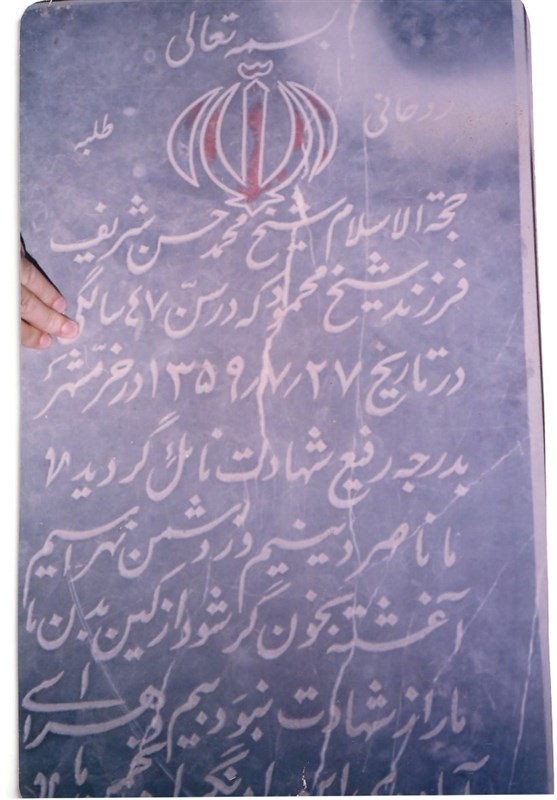 بسمه تعالی
روحانی طلبه
حجة الاسلام شیخ محمد حسن شریف
فرزند شیخ محمود که در سنّ ۴۷ سالگی
در تاریخ ۲۷/۷/۱۳۵۹ در خرّمشهر
بدرجه رفیع شهادت نائل گردید
ما ناصر دینیم و ز دشمن نهراسیم
آغشته بخون گر شود از کین بدن ما
ما را ز شهادت نبود بیم و هراسی